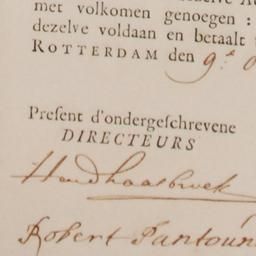 met volkomen genoegen :
dezelve voldaan en betaalt
ROTTERDAM den 9.e
Preſent d'ondergeſchrevene
DIRECTEURS
Robert Santoun